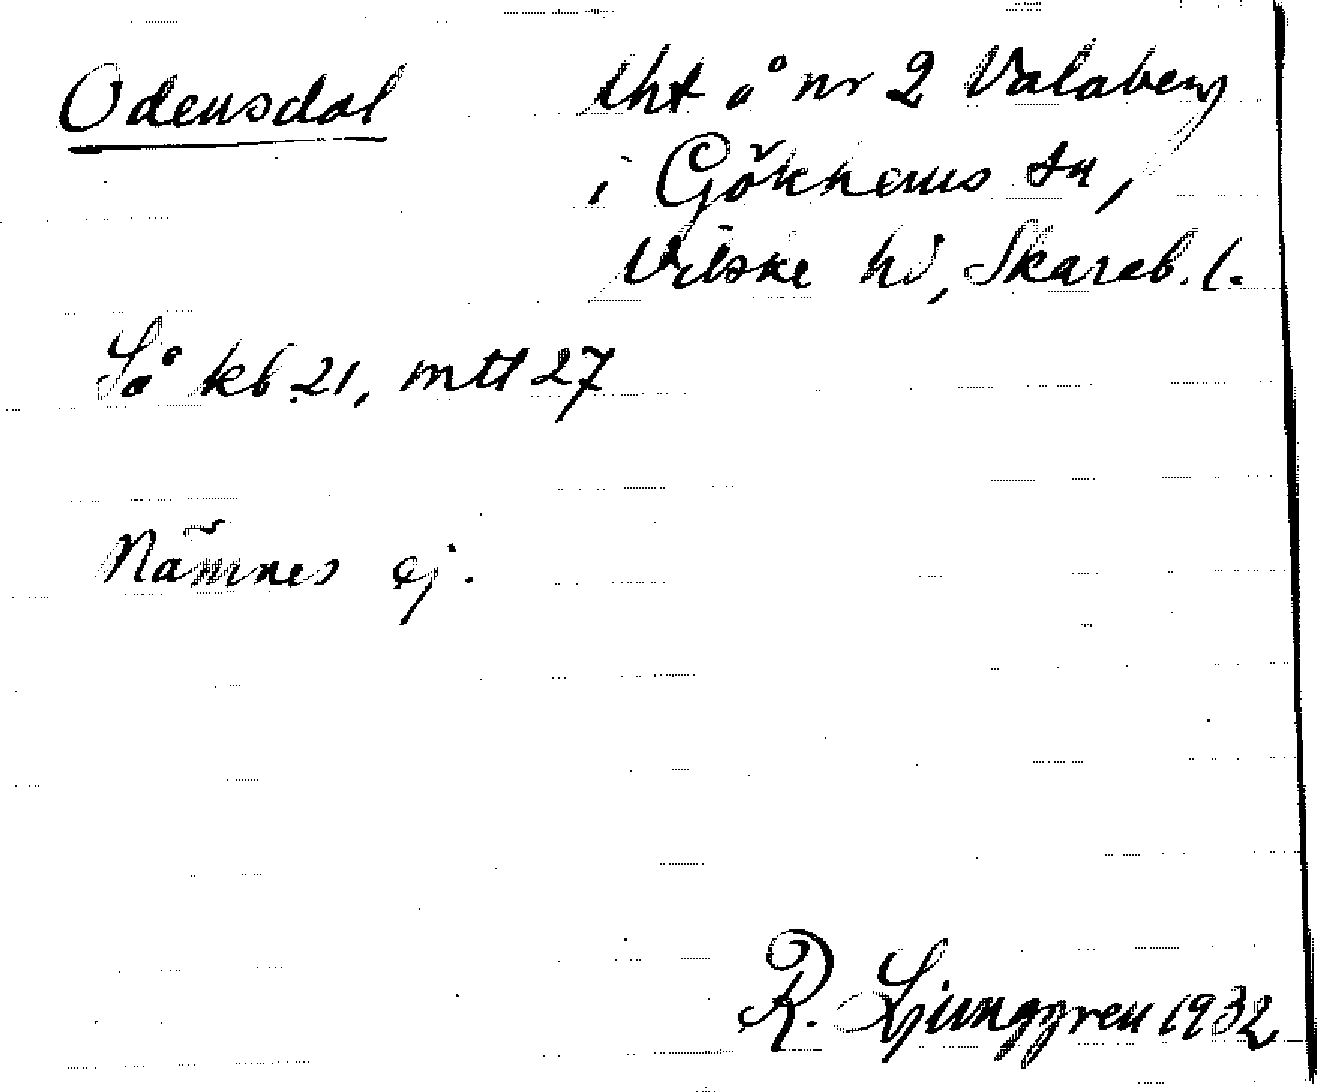 Odensdal
lht å nr 2 Valaberg
i Gökhems sn,
Vilske hd, Skarab. l.
Så kb 21, mtl 27
Nämnes ej.
R. Ljunggren 1932